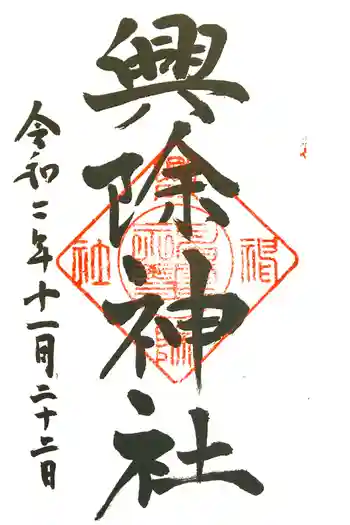 興除神社
令和二年十一月二十二日
神
社